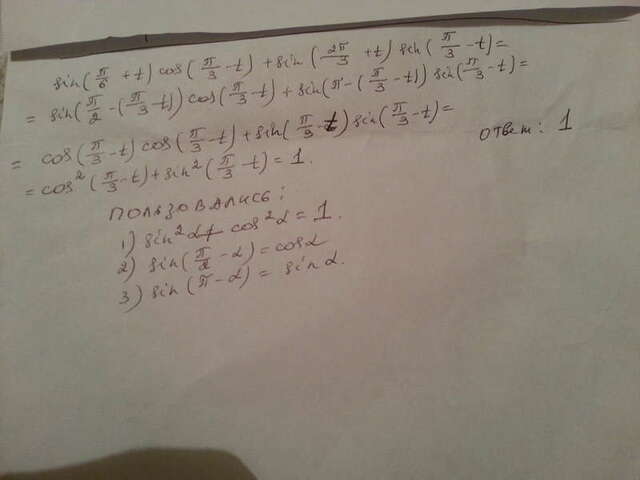 sin(π/6 + t) cos(π/3 - t) + sin(2π/3 + t) sin(π/3 - t) =
= sin(π/2 - (π/3 - t)) cos(π/3 - t) + sin(π - (π/3 - t)) sin(π/3 - t) =
= cos(π/3 - t) cos(π/3 - t) + sin(π/3 - t) sin(π/3 - t) =
= cos²(π/3 - t) + sin²(π/3 - t) = 1.
ответ: 1
ПОЛЬЗОВАЛИСЬ:
1) sin²α + cos²α = 1.
2) sin(π/2 - α) = cosα
3) sin(π - α) = sinα.